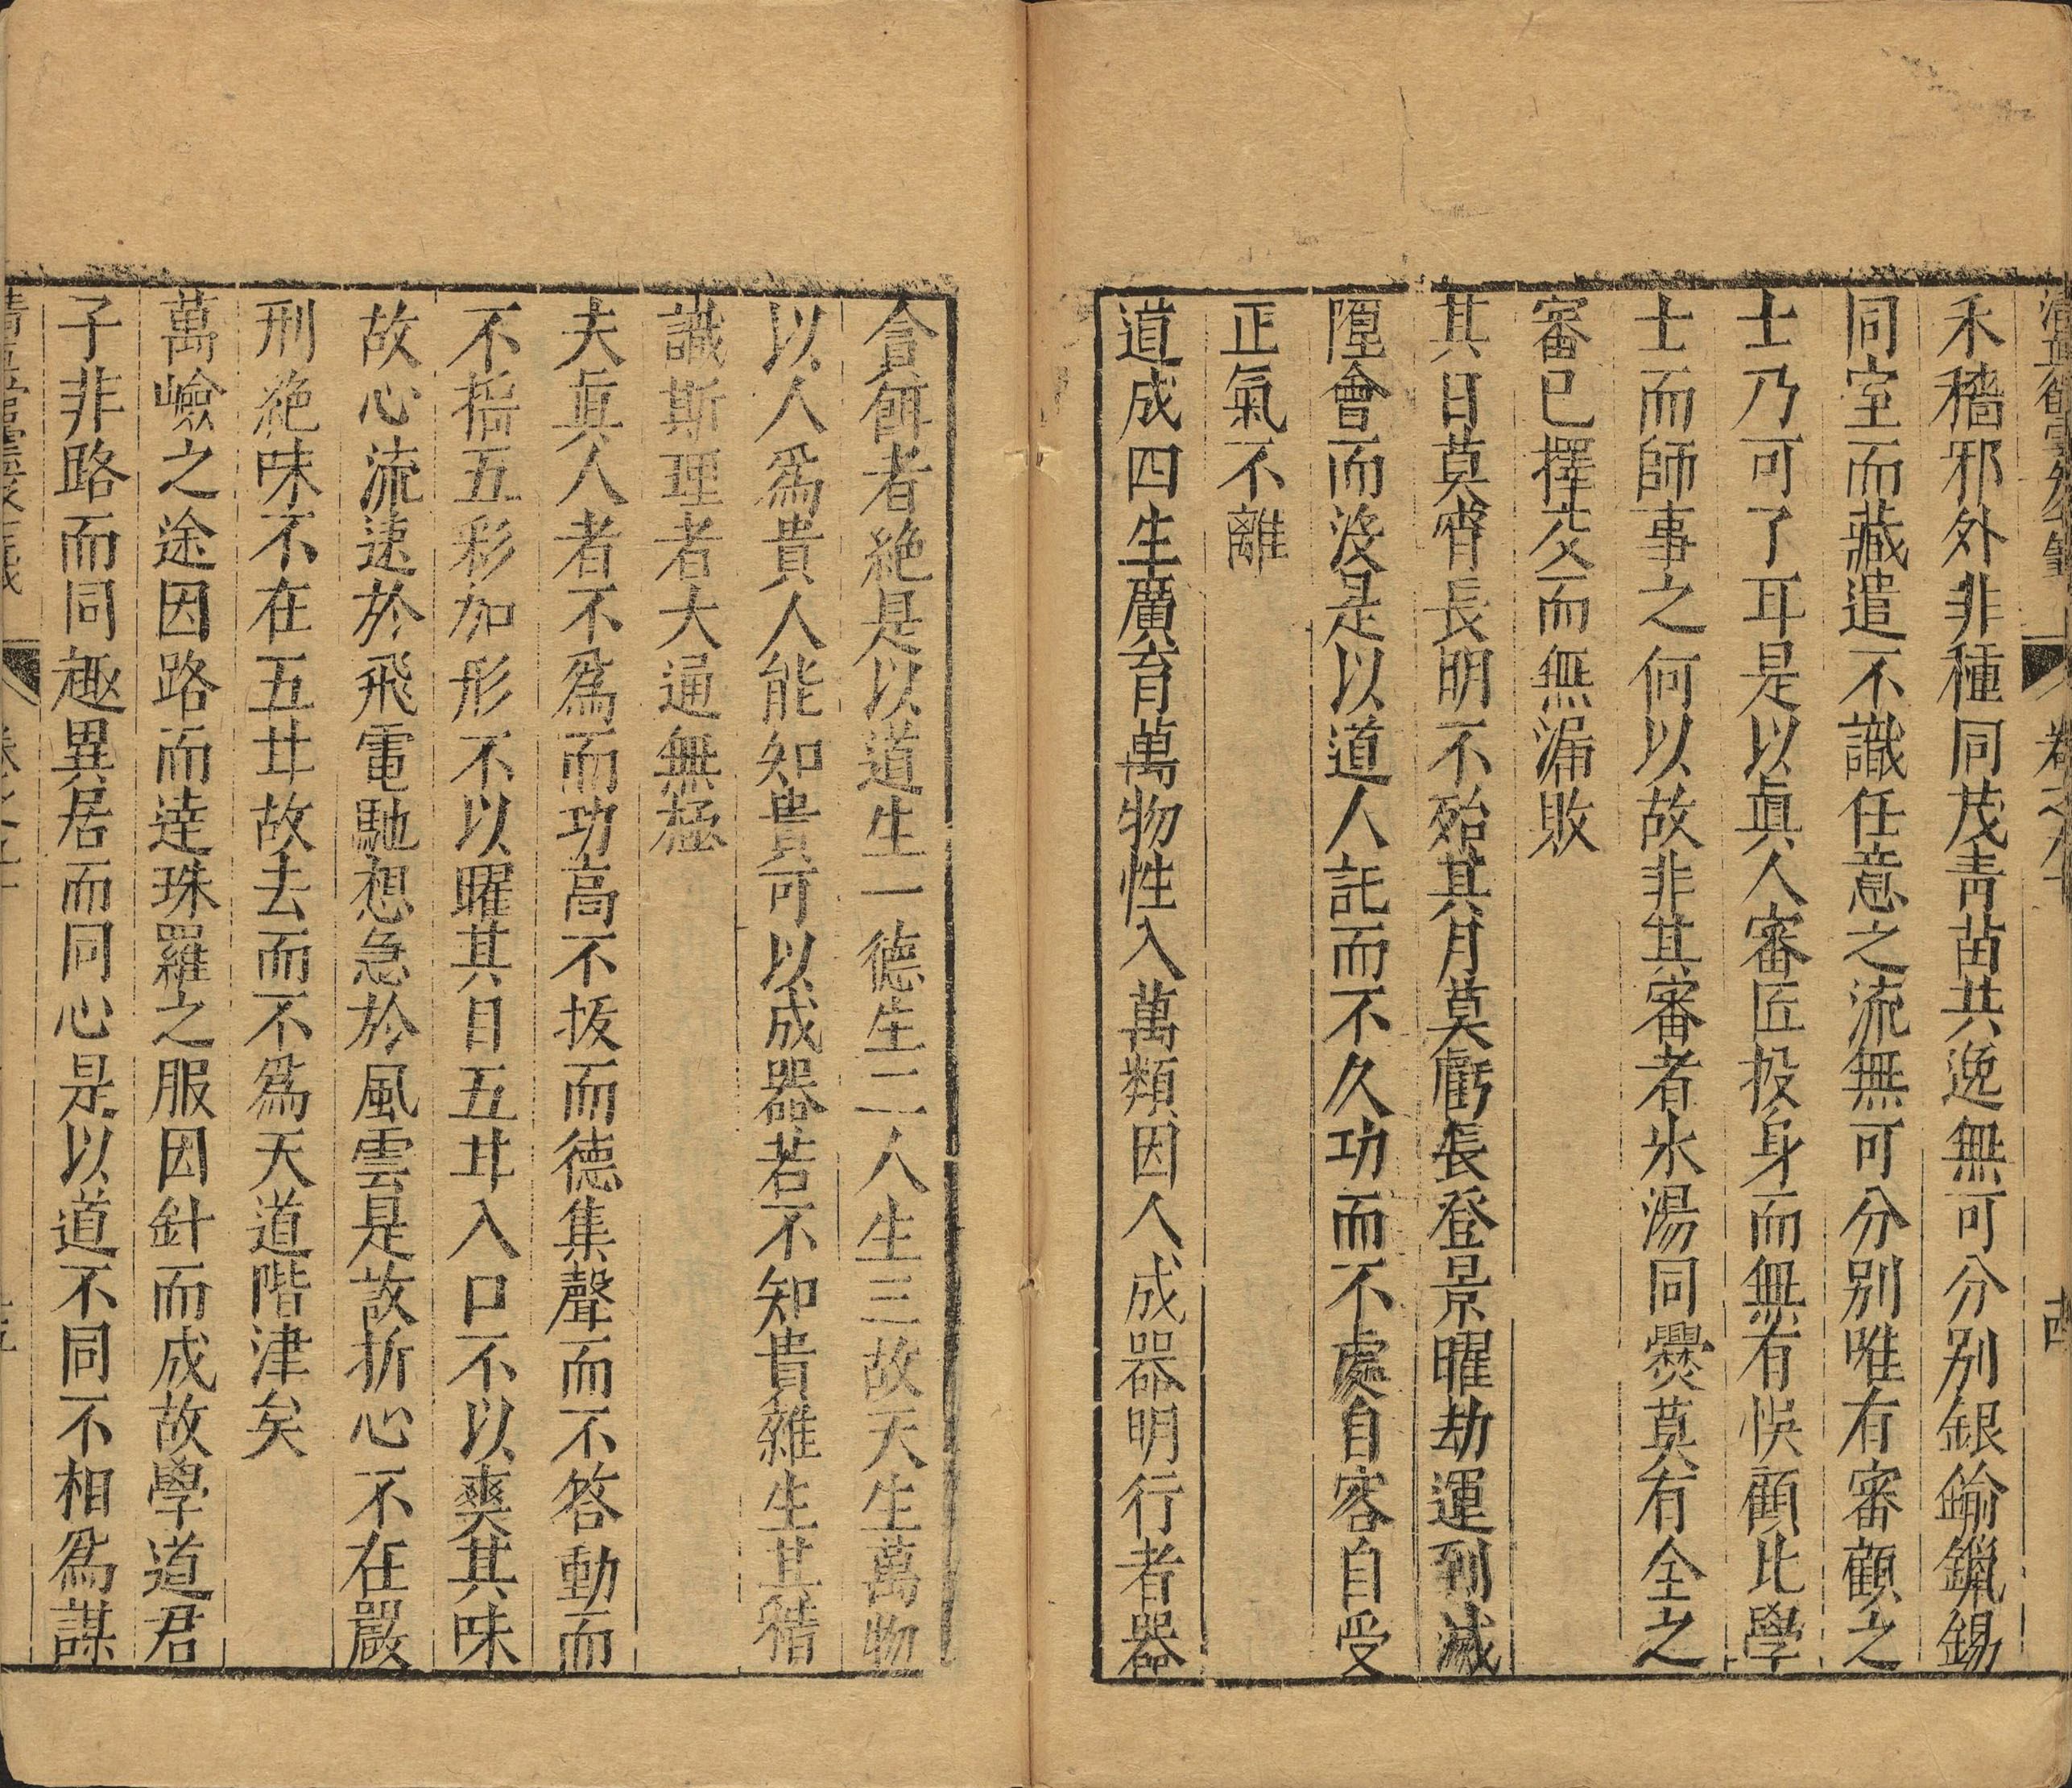 禾穡邪外非種同茂青苗共逸無可分別銀鍮鑞錫
同室而藏遣不識任意之流無可分別唯有審顧之
士乃可了耳是以眞人審匠投身而無有悞顧此學
士而師事之何以故非其審者氷湯同爨莫有全之
審已擇交而無漏敗
其日莫霄長明不殆其月莫虧長登景曜劫運到滅
陻會而沒是以道人託而不久功而不處自客自受
正氣不離
道成四生廣育萬物性入萬類因人成器明行者器
貪餌者絶是以道生一德生二人生三故天生萬物
以人爲貴人能知貴可以成器若不知貴雜生其稭
識斯理者大通無極
夫眞人者不爲而功高不扳而德集聲而不答動而
不搖五彩加形不以曜其目五甘入口不以爽其味
故心流速於飛電馳想急於風雲是故折心不在嚴
刑絶味不在五甘故去而不爲天道階津矣
萬嶮之途因路而達珠羅之服因針而成故學道君
子非路而同趣異居而同心是以道不同不相爲謀